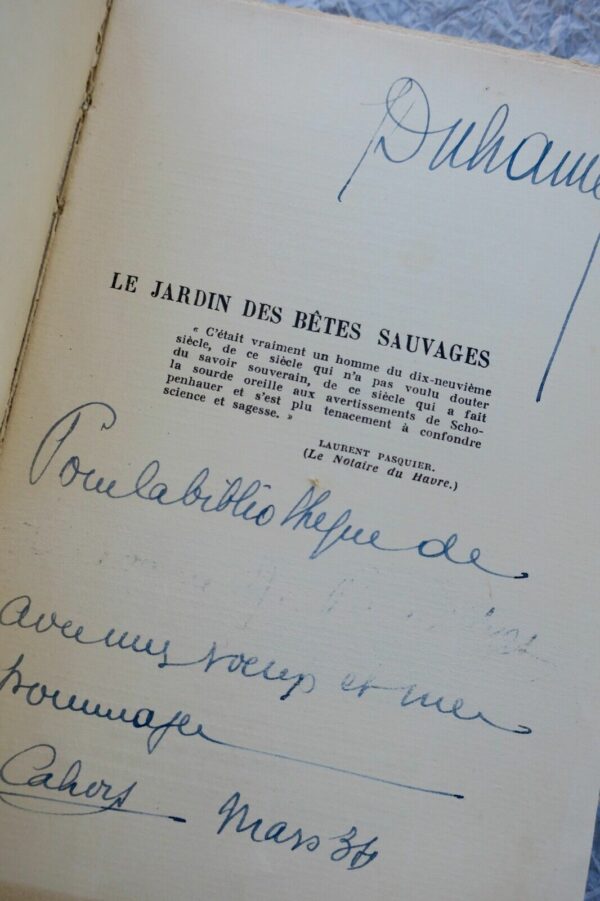 Duhame
LE JARDIN DES BÊTES SAUVAGES
« C'était vraiment un homme du dix-neuvième
siècle, de ce siècle qui n'a pas voulu douter
du savoir souverain, de ce siècle qui a fait
la sourde oreille aux avertissements de Scho-
penhauer et s'est plu tenacement à confondre
science et sagesse. »
LAURENT PASQUIER.
(Le Notaire du Havre.)
Pour la bibliothèque de
avec mes voeux et mes
hommages
Cahors Mars 34